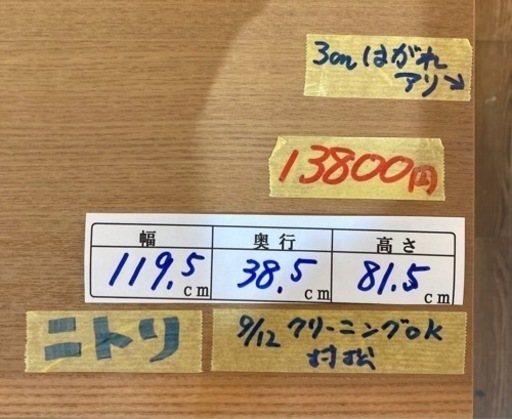 3cmはがれ
アリ↘
13800円
幅 奥行 高さ
119.5cm 38.5cm 81.5cm
ニトリ
9/12 クリーニングOK
村松